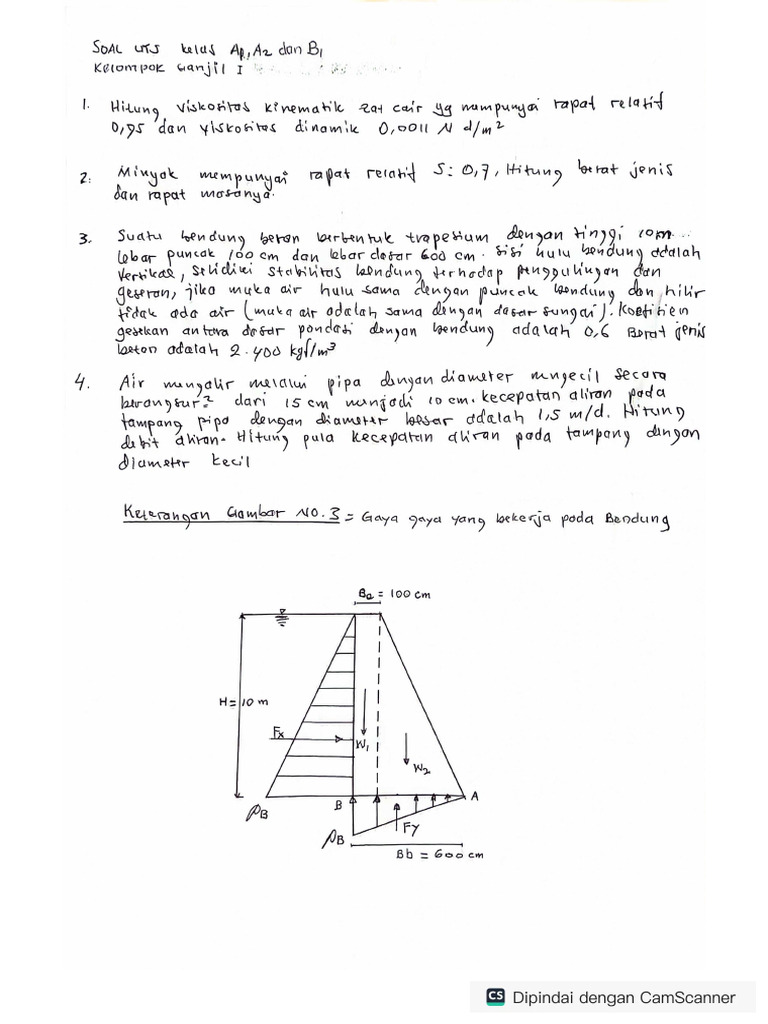 SOAL UTS kelas A1, A2 dan B1
Kelompok Ganjil I
1. Hitung viskositas kinematik zat cair yg mempunyai rapat relatif
0,95 dan viskositas dinamik 0,0011 N d/m²
2. Minyak mempunyai rapat relatif S: 0,7, Hitung berat jenis
dan rapat masanya.
3. Suatu bendung beton berbentuk trapesium dengan tinggi 10m
lebar puncak 100 cm dan lebar dasar 600 cm. sisi hulu bendung adalah
vertikal, selidiki stabilitas bendung terhadap penggulingan dan
geseran, jika muka air hulu sama dengan puncak bendung dan hilir
tidak ada air (muka air adalah sama dengan dasar sungai). Koefisien
gesekan antara dasar pondasi dengan bendung adalah 0,6 Berat jenis
beton adalah 2.400 kgf/m³
4. Air mengalir melalui pipa dengan diameter mengecil secara
berangsur² dari 15 cm menjadi 10 cm. kecepatan aliran pada
tampang pipa dengan diameter besar adalah 1,5 m/d. Hitung
debit aliran. Hitung pula kecepatan aliran pada tampang dengan
diameter kecil
Keterangan Gambar NO. 3 = Gaya gaya yang bekerja pada Bendung
Ba = 100 cm
H = 10 m
Fx
W1
W2
B
A
ρB
ρB
Fy
Bb = 600 cm
CS Dipindai dengan CamScanner